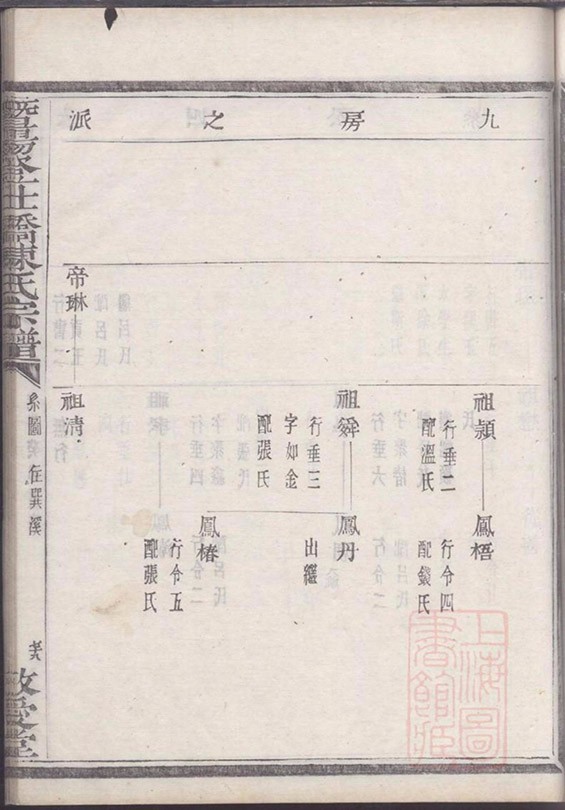 九房之派
祖潁
行垂二
配溫氏
鳳梧
行令四
配錢氏
祖舜
行垂三
字如金
配張氏
鳳丹
出繼
鳳椿
行令五
配張氏
帝琳
祖清
暨陽
橋陳氏宗譜
系圖
在巽溪
敬愛堂
上海圖書館藏